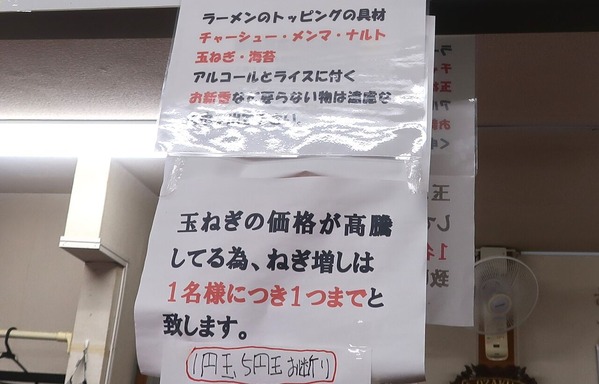 ラーメンのトッピングの具材
チャーシュー・メンマ・ナルト
玉ねぎ・海苔
アルコールとライスに付く
お新香など要らない物は遠慮な
さい。
玉ねぎの価格が高騰
してる為、ねぎ増しは
1名様につき1つまでと
致します。
1円玉、5円玉お断り